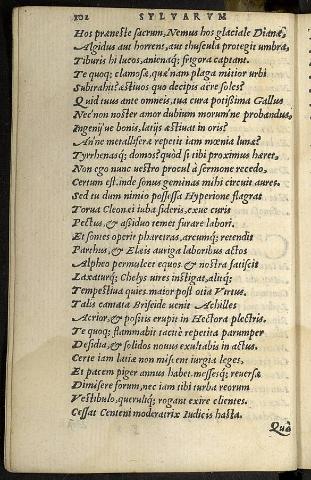 102 SYLVARVM
Hos præneste sacrum, Nemus hos glaciale Dianæ,
Algidus aut horrens, aut thuscula protegit umbra,
Tiburis hi lucos, anienaq; frigora captant.
Te quoq; clamosæ, quæ nam plaga mitior urbi
Subtrahit? æstiuos quo decipis aëre soles?
Quid tuus ante omneis, tua cura potissima Gallus
Nec non noster amor dubium morum'ne probandus,
Ingenij'ue bonis, latijs æstiuat in oris?
An'ne metalliferæ repetit iam mœnia lunæ?
Tyrrhenasq; domos? quòd si tibi proximus hæret,
Non ego nunc uestro procul à sermone recedo.
Certum est, inde sonus geminas mihi circuit aures.
Sed tu dum nimio possessa Hyperione flagrat
Torua Cleonei iuba sideris, exue curis
Pectus, & assiduo temet furare labori.
Et sontes operit pharetras, arcumq; retendit
Parthus, & Elæis auriga laboribus actos
Alpheo permulcet equos & nostra fatiscit
Laxaturq; Chelys uires instigat, alitq;
Tempestiua quies maior post otia Virtus.
Talis cantata Briseide uenit Achilles
Acrior, & positis erupit in Hectora plectris.
Te quoq; flammabit tacitè repetita parumper
Desidia, & solidos nouus exultabis in actus.
Certe iam latiæ non miscent iurgia leges,
Et pacem piger annus habet. messesq; reuersæ
Dimisere forum, nec iam tibi turba reorum
Vestibulo, querulíq; rogant exire clientes.
Cessat Centeni moderatrix Iudicis hasta.
Quà